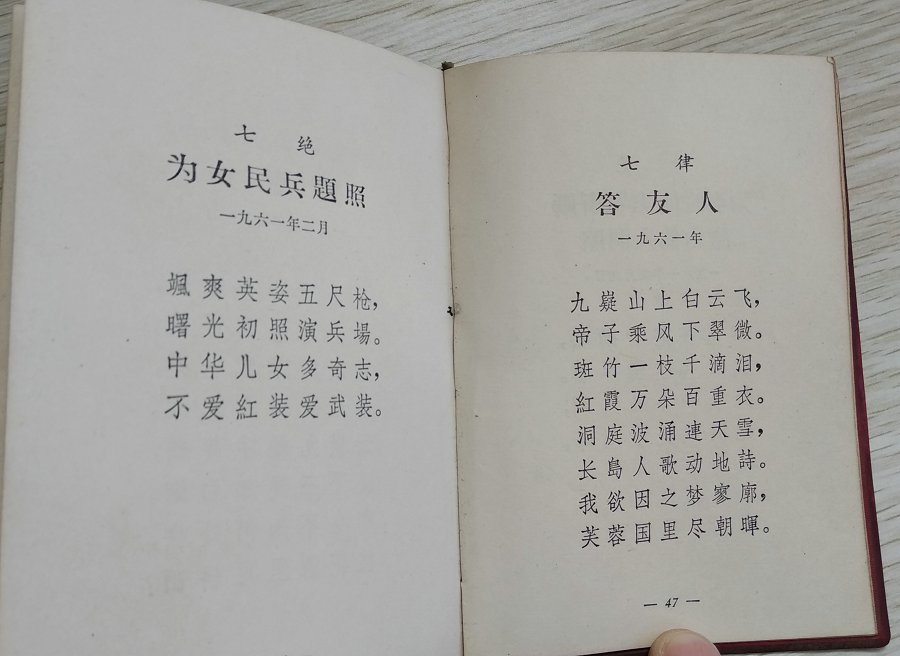 七 绝
为女民兵題照
一九六一年二月
颯爽英姿五尺枪,
曙光初照演兵場。
中华儿女多奇志,
不爱紅装爱武装。
七 律
答友人
一九六一年
九嶷山上白云飞,
帝子乘风下翠微。
斑竹一枝千滴泪,
紅霞万朵百重衣。
洞庭波涌連天雪,
长島人歌动地詩。
我欲因之梦寥廓,
芙蓉国里尽朝暉。
— 47 —